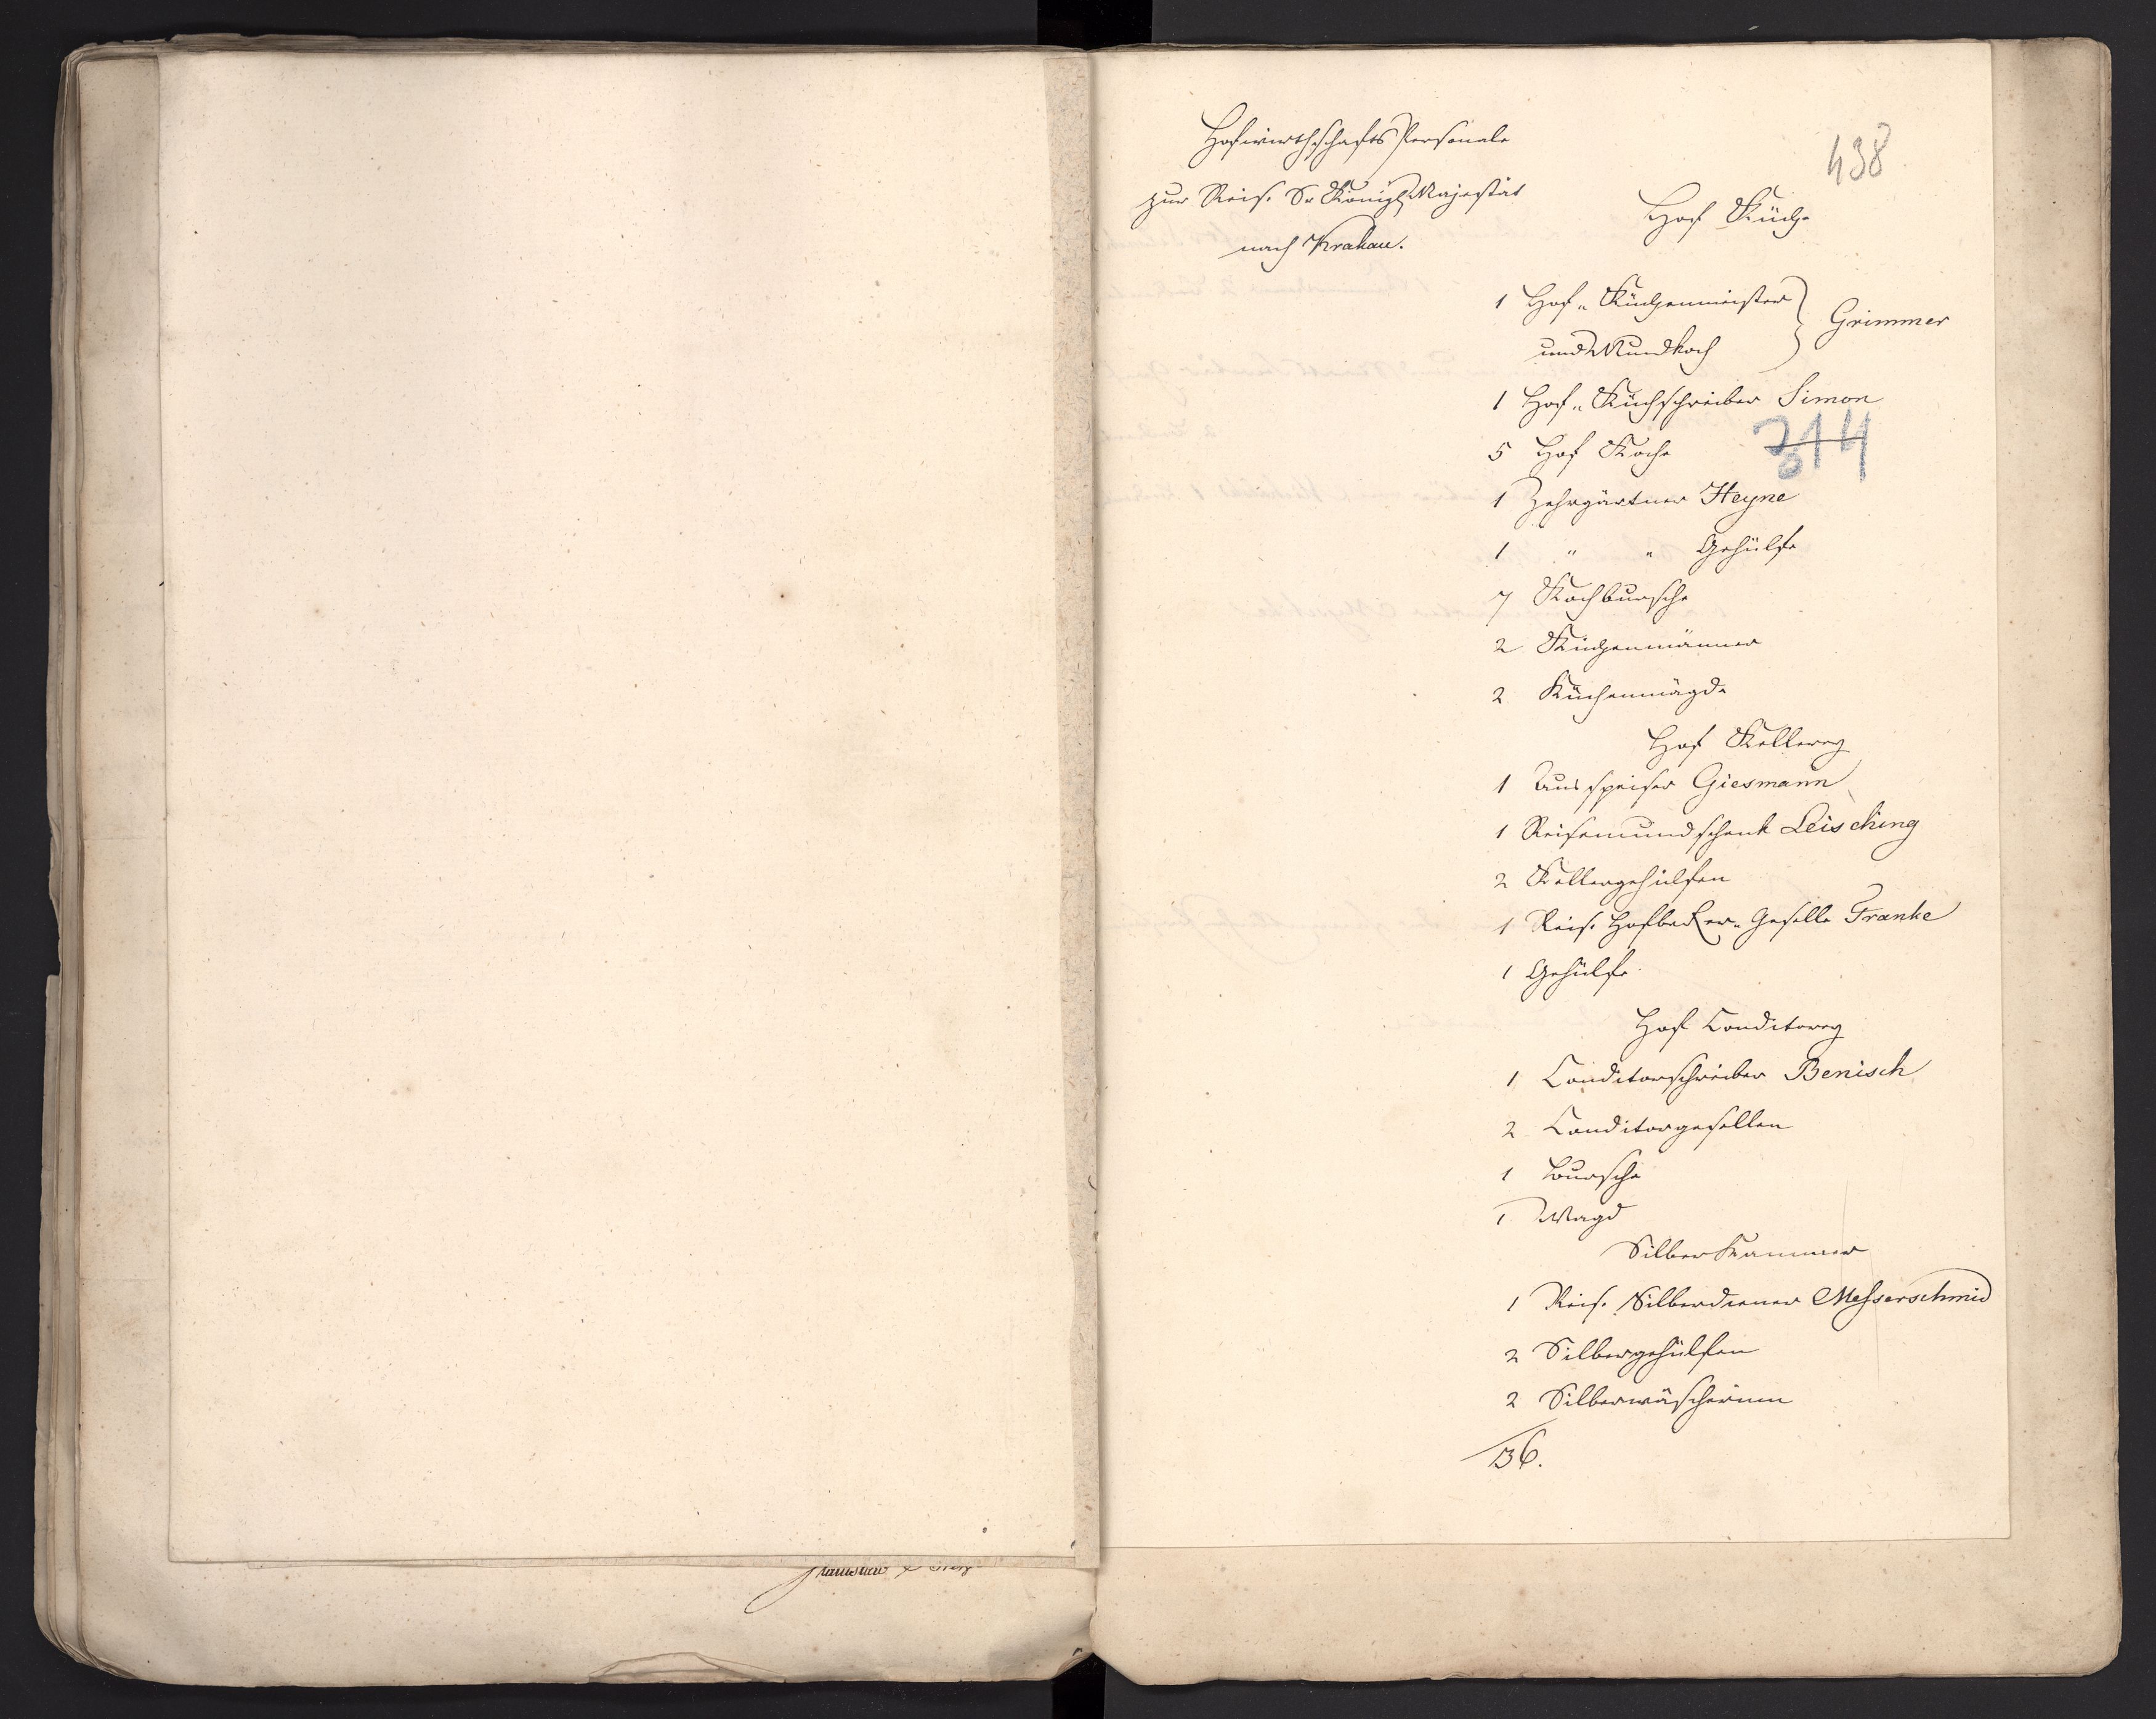 Hofwirthschafts Personale
zur Reise Sr Königl Majestät
nach Krakau.
438
Hof Küche
1 Hof-Küchenmeister
und Mundkoch } Grimmer
1 Hof-Küchschreiber Simon
314
5 Hof Köche
1 Zehrgärtner Heyne
1 " " Gehülfe
7 Kochbursche
2 Küchenmänner
2 Küchenmägde
Hof Kellerey
1 Ausspeiser Giesmann
1 Reisemundschenk Leisching
2 Kellergehülfen
1 Reise Hofbecker-Geselle Franke
1 Gehülfe
Hof Conditorey
1 Conditorschreiber Benisch
2 Conditorgesellen
1 Bursche
1 Magd
Silber Kammer
1 Reise Silberdiener Meßerschmid
2 Silbergehülfen
2 Silberwäscherinn
36.